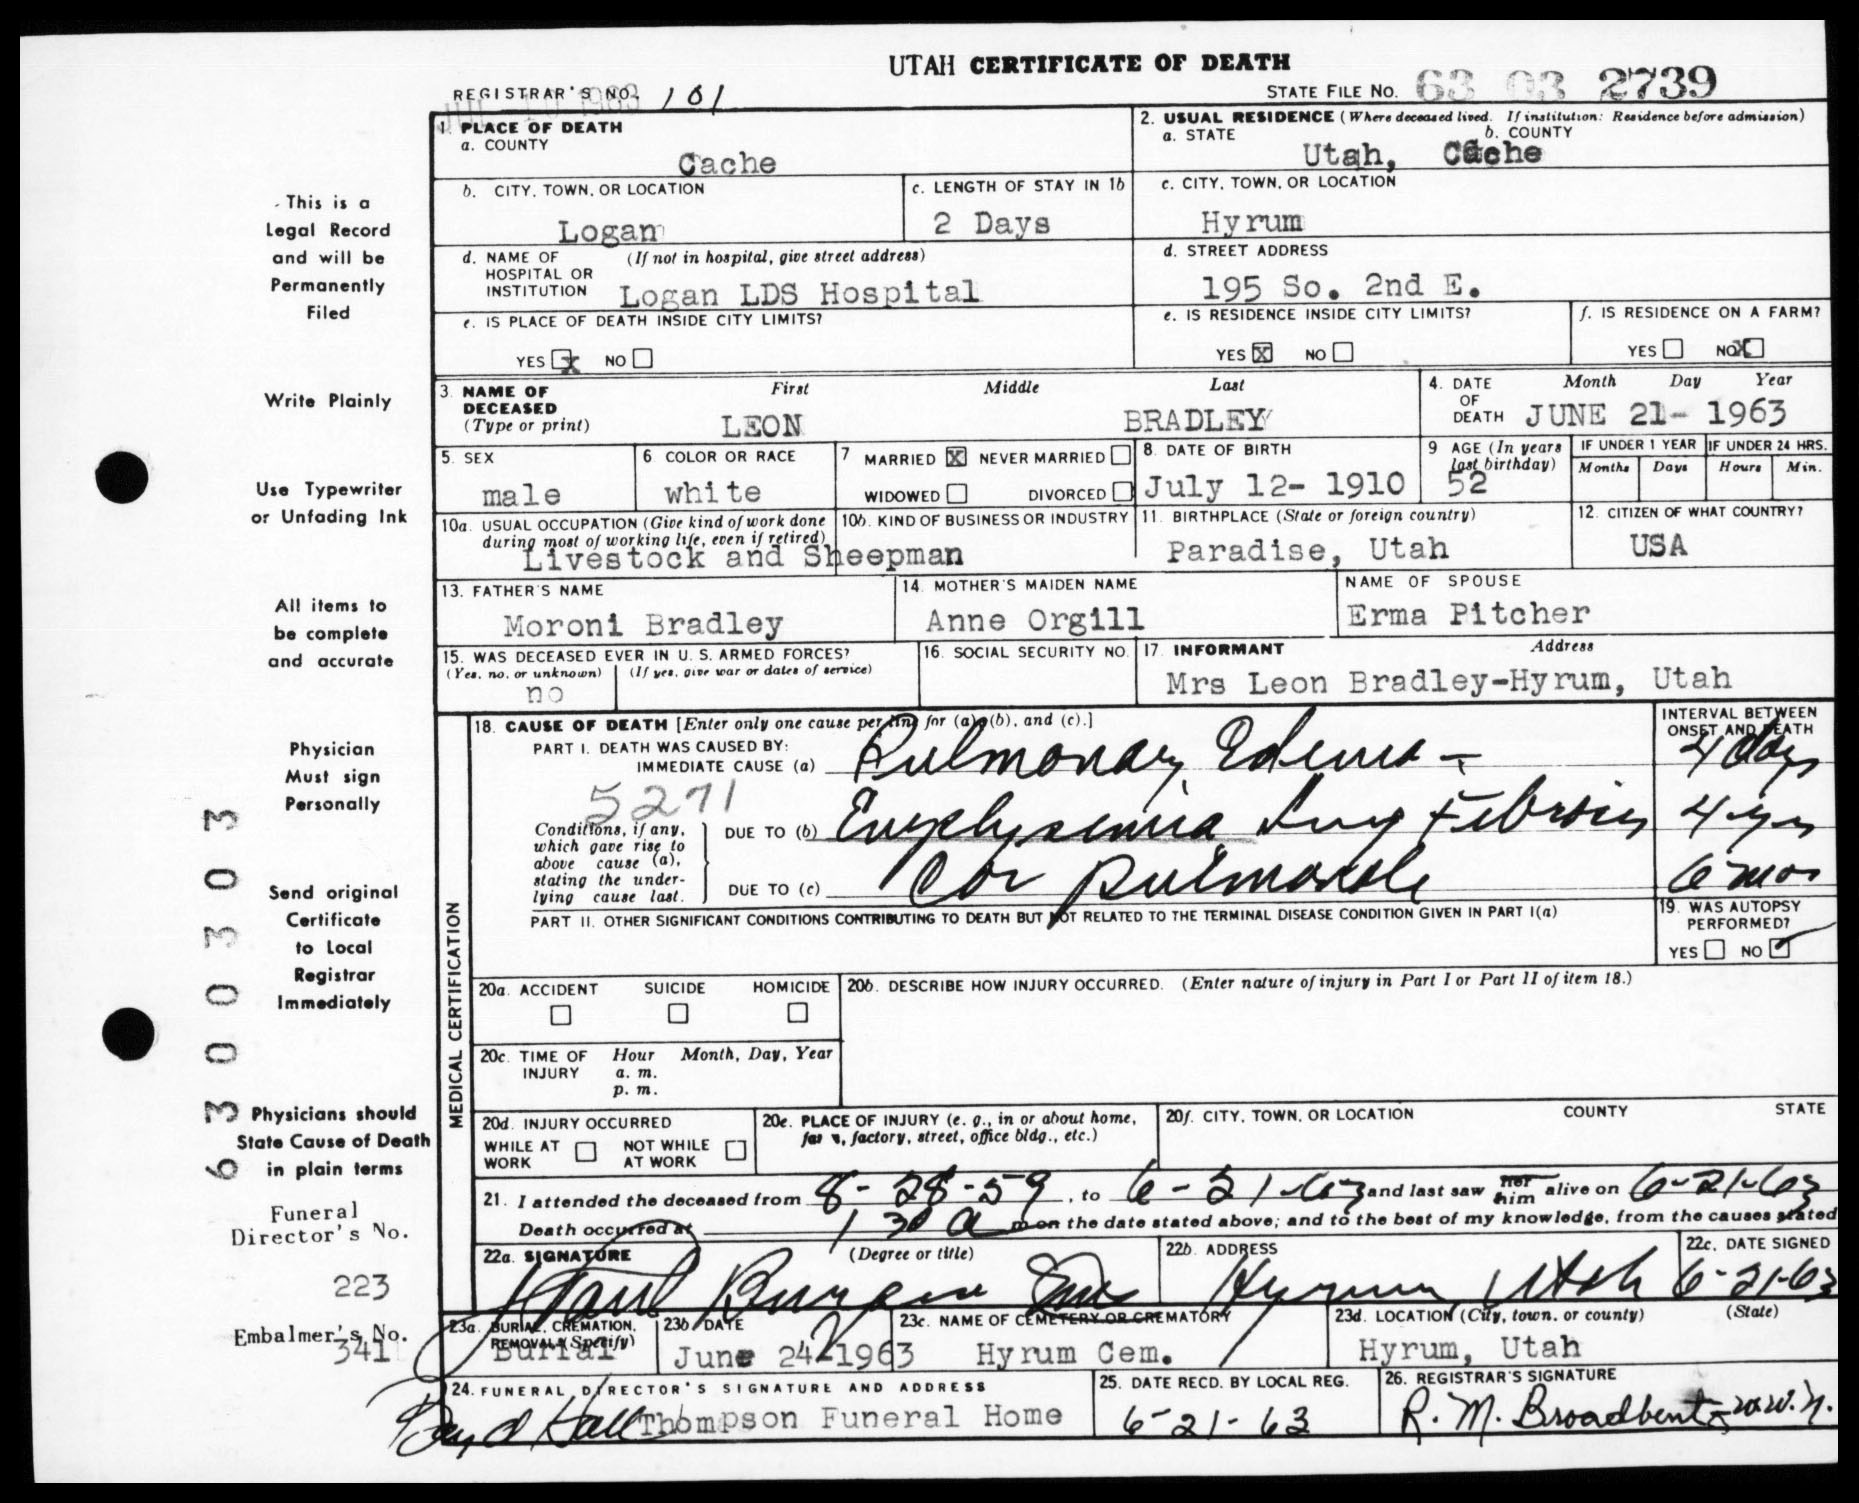 UTAH CERTIFICATE OF DEATH
REGISTRAR'S NO. 101
JUL 10 1963
STATE FILE NO. 63 03 2739
1. PLACE OF DEATH
a. COUNTY
Cache
2. USUAL RESIDENCE (Where deceased lived. If institution: Residence before admission)
a. STATE b. COUNTY
Utah, Cache
b. CITY, TOWN, OR LOCATION
Logan
c. LENGTH OF STAY IN 1b
2 Days
c. CITY, TOWN, OR LOCATION
Hyrum
d. NAME OF (If not in hospital, give street address)
HOSPITAL OR
INSTITUTION Logan LDS Hospital
d. STREET ADDRESS
195 So. 2nd E.
e. IS PLACE OF DEATH INSIDE CITY LIMITS?
YES X NO
e. IS RESIDENCE INSIDE CITY LIMITS?
YES X NO
f. IS RESIDENCE ON A FARM?
YES NO X
3. NAME OF DECEASED (Type or print)
First Middle Last
LEON BRADLEY
4. DATE OF DEATH Month Day Year
JUNE 21- 1963
5. SEX
male
6 COLOR OR RACE
white
7 MARRIED X NEVER MARRIED
WIDOWED DIVORCED
8. DATE OF BIRTH
July 12- 1910
9 AGE (In years last birthday)
52
IF UNDER 1 YEAR
Months Days
IF UNDER 24 HRS.
Hours Min.
10a. USUAL OCCUPATION (Give kind of work done
during most of working life, even if retired)
10b. KIND OF BUSINESS OR INDUSTRY
Livestock and Sheepman
11. BIRTHPLACE (State or foreign country)
Paradise, Utah
12. CITIZEN OF WHAT COUNTRY?
USA
13. FATHER'S NAME
Moroni Bradley
14. MOTHER'S MAIDEN NAME
Anne Orgill
NAME OF SPOUSE
Erma Pitcher
15. WAS DECEASED EVER IN U. S. ARMED FORCES?
(Yes, no, or unknown) (If yes, give war or dates of service)
no
16. SOCIAL SECURITY NO.
17. INFORMANT Address
Mrs Leon Bradley-Hyrum, Utah
MEDICAL CERTIFICATION
18. CAUSE OF DEATH [Enter only one cause per line for (a), (b), and (c).]
INTERVAL BETWEEN
ONSET AND DEATH
PART I. DEATH WAS CAUSED BY:
IMMEDIATE CAUSE (a) Pulmonary Edema - 4 days
5271
Conditions, if any,
which gave rise to
above cause (a),
stating the under-
lying cause last.
DUE TO (b) Emphysemia Lung Fibrosis 4 yrs
DUE TO (c) Cor Pulmonale 6 mos
PART II. OTHER SIGNIFICANT CONDITIONS CONTRIBUTING TO DEATH BUT NOT RELATED TO THE TERMINAL DISEASE CONDITION GIVEN IN PART I(a)
19. WAS AUTOPSY
PERFORMED?
YES NO ✓
20a. ACCIDENT SUICIDE HOMICIDE
20b. DESCRIBE HOW INJURY OCCURRED. (Enter nature of injury in Part I or Part II of item 18.)
20c. TIME OF INJURY Hour Month, Day, Year
a. m.
p. m.
20d. INJURY OCCURRED
WHILE AT WORK NOT WHILE AT WORK
20e. PLACE OF INJURY (e. g., in or about home,
farm, factory, street, office bldg., etc.)
20f. CITY, TOWN, OR LOCATION COUNTY STATE
21. I attended the deceased from 8-28-59, to 6-21-63 and last saw her him alive on 6-21-63
Death occurred at 1 30 a m on the date stated above; and to the best of my knowledge, from the causes stated
22a. SIGNATURE (Degree or title)
Paul Burgess
22b. ADDRESS
Hyrum Utah
22c. DATE SIGNED
6-21-63
23a. BURIAL, CREMATION, REMOVAL (Specify)
Burial
23b DATE
June 24-1963
23c. NAME OF CEMETERY OR CREMATORY
Hyrum Cem.
23d. LOCATION (City, town, or county) (State)
Hyrum, Utah
24. FUNERAL DIRECTOR'S SIGNATURE AND ADDRESS
Boyd Hall Thompson Funeral Home
25. DATE RECD. BY LOCAL REG.
6-21-63
26. REGISTRAR'S SIGNATURE
R. M. Broadbent
This is a
Legal Record
and will be
Permanently
Filed
Write Plainly
Use Typewriter
or Unfading Ink
All items to
be complete
and accurate
Physician
Must sign
Personally
Send original
Certificate
to Local
Registrar
Immediately
Physicians should
State Cause of Death
in plain terms
Funeral
Director's No.
223
Embalmer's No.
341
6 3 0 0 3 0 3